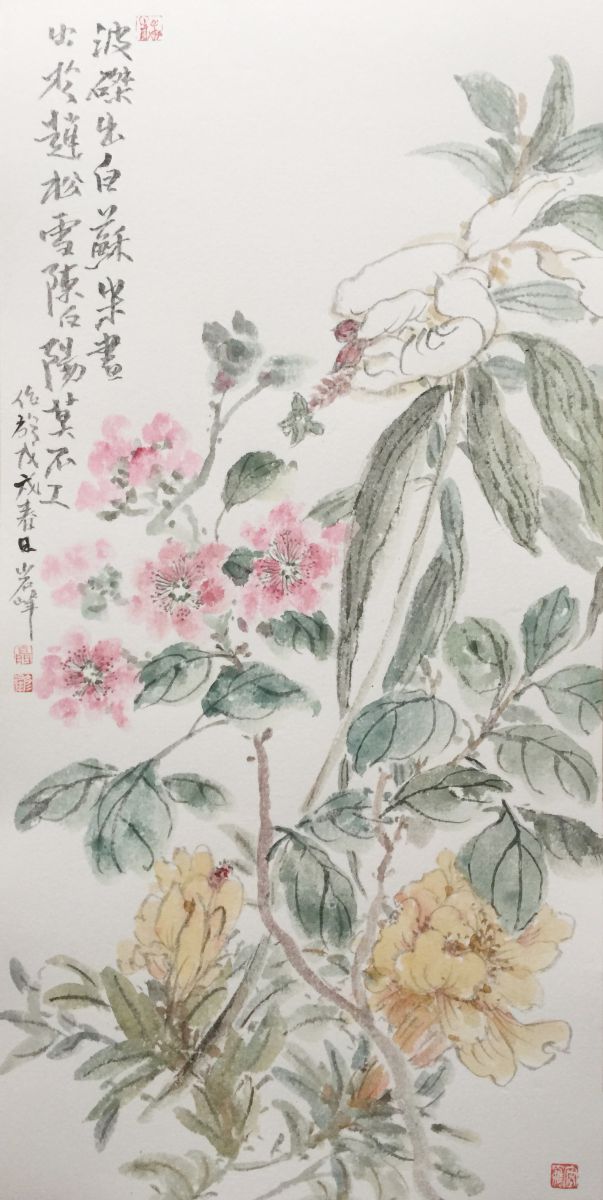 波磔出自蘇米畫
出於趙松雪陳白陽莫不工
戊戌春日岩峰